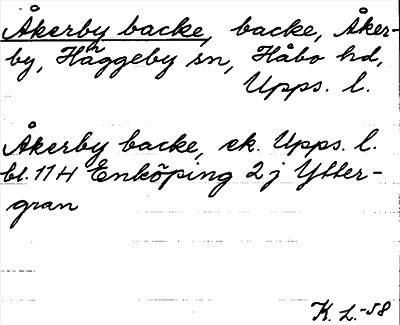 Åkerby backe, backe, Åker-
by, Häggeby sn, Håbo hd,
Upps. l.
Åkerby backe, ek. Upps. l.
bl. 11 H Enköping 2 j Ytter-
gran
K. L. -58